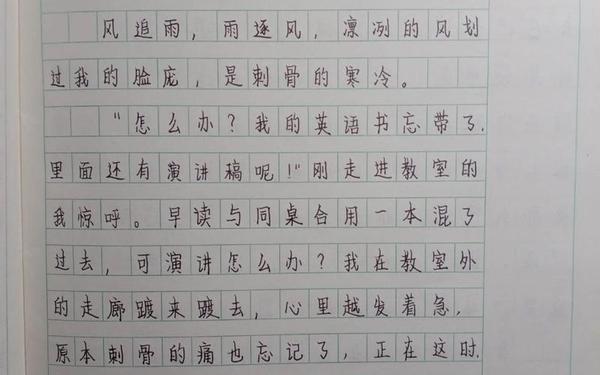 风追雨，雨逐风，凛冽的风划
过我的脸庞，是刺骨的寒冷。
“怎么办？我的英语书忘带了，
里面还有演讲稿呢！”刚走进教室的
我惊呼。早读与同桌合用一本混了
过去，可演讲怎么办？我在教室外
的走廊踱来踱去，心里越发着急，
原本刺骨的痛也忘记了，正在这时，